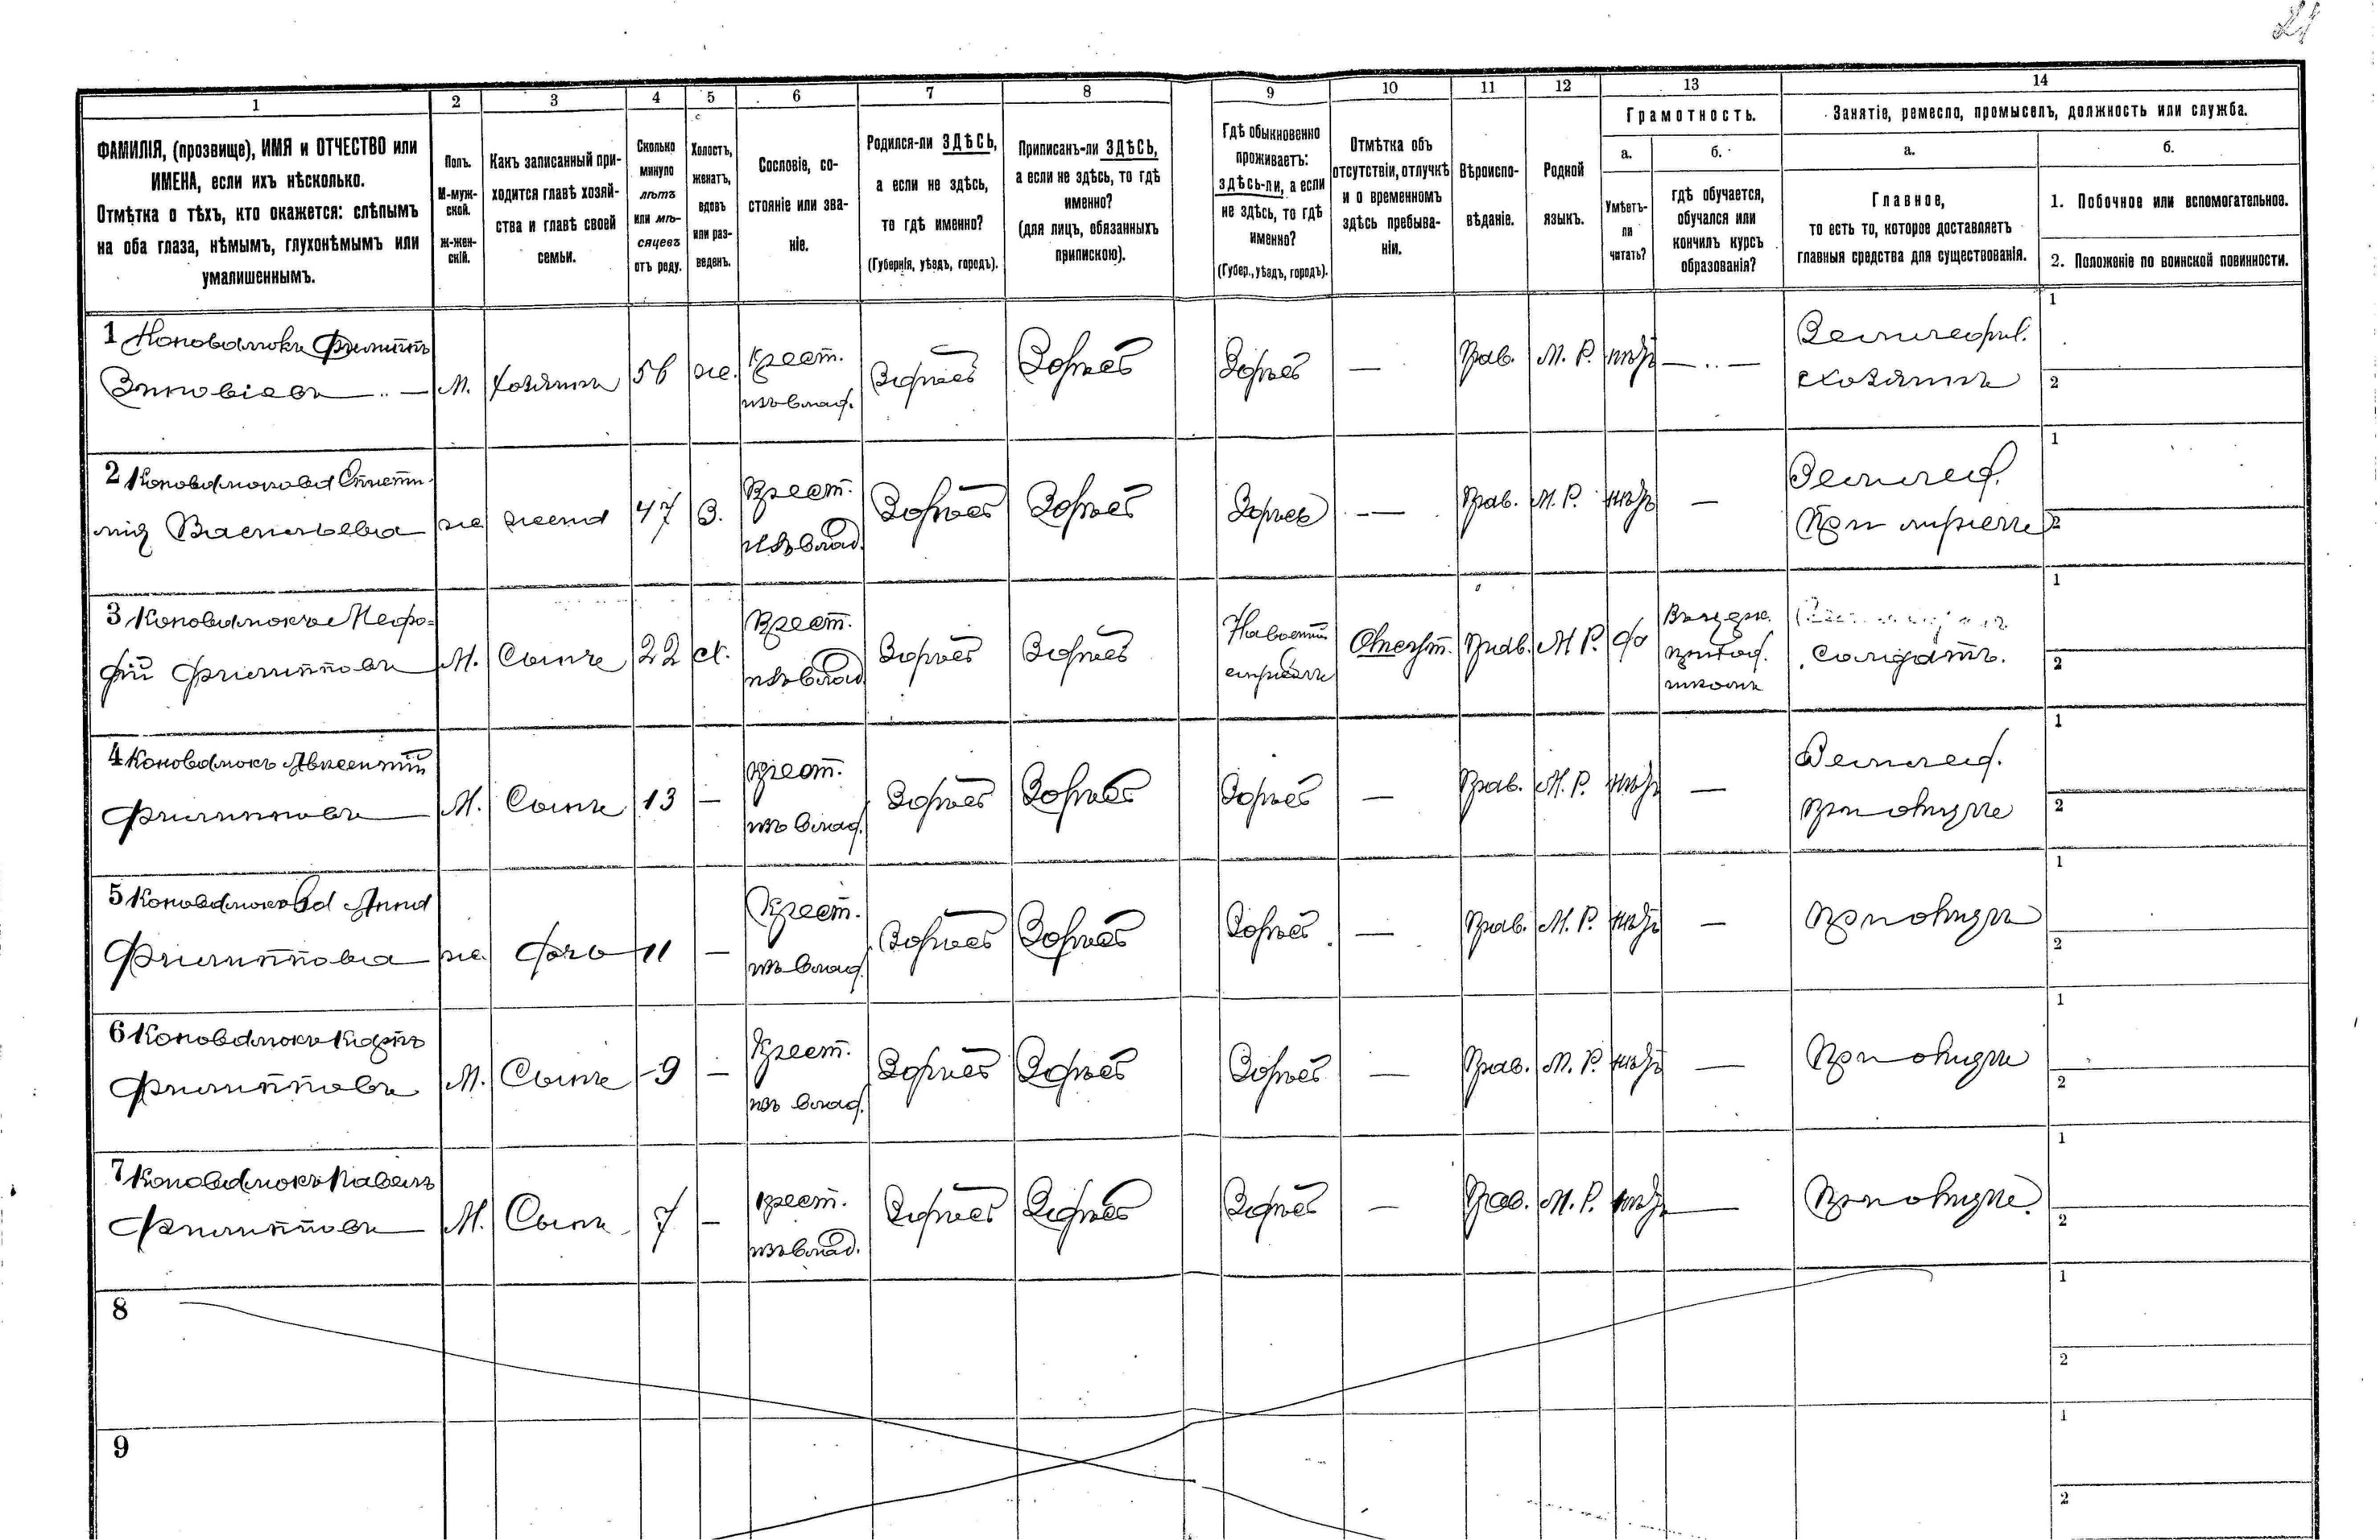 21
1 2 3 4 5 6 7 8 9 10 11 12 13 14
ФАМИЛІЯ, (прозвище), ИМЯ и ОТЧЕСТВО или
ИМЕНА, если ихъ нѣсколько.
Отмѣтка о тѣхъ, кто окажется: слѣпымъ
на оба глаза, нѣмымъ, глухонѣмымъ или
умалишеннымъ.
Полъ.
М-муж-
ской.
Ж-жен-
скій.
Какъ записанный при-
ходится главѣ хозяй-
ства и главѣ своей
семьи.
Сколько
минуло
лѣтъ
или мѣ-
сяцевъ
отъ роду.
Холостъ,
женатъ,
вдовъ
или раз-
веденъ.
Сословіе, со-
стояніе или зва-
ніе.
Родился-ли ЗДѢСЬ,
а если не здѣсь,
то гдѣ именно?
(Губернія, уѣздъ, городъ).
Приписанъ-ли ЗДѢСЬ,
а если не здѣсь, то гдѣ
именно?
(для лицъ, обязанныхъ
припискою).
Гдѣ обыкновенно
проживаетъ:
здѣсь-ли, а если
не здѣсь, то гдѣ
именно?
(Губер., уѣздъ, городъ).
Отмѣтка объ
отсутствіи, отлучкѣ
и о временномъ
здѣсь пребыва-
ніи.
Вѣроиспо-
вѣданіе.
Родной
языкъ.
Грамотность.
а.
Умѣетъ-
ли
читать?
б.
гдѣ обучается,
обучался или
кончилъ курсъ
образованія?
Занятіе, ремесло, промыселъ, должность или служба.
а.
Главное,
то есть то, которое доставляетъ
главныя средства для существованія.
б.
1. Побочное или вспомогательное.
2. Положеніе по воинской повинности.
1 Коновалюкъ Филиппъ
Зиновіевъ М. хозяинъ 56 ж. Крест. Здѣсь Здѣсь Здѣсь — Прав. М. Р. нѣтъ — Земледѣл.
изъ влад. хозяинъ
1
2
2 Коновалюкова
Васильевна ж жена 47 З. Крест. Здѣсь Здѣсь Здѣсь — Прав. М. Р. нѣтъ — Земледѣл.
изъ влад. При мужѣ
1
2
3 Коновалюкъ Мефо-
фій Филипповъ М. Сынъ 22 х. Крест. Здѣсь Здѣсь Отсут. Прав. М. Р. да
изъ влад. школѣ Солдатъ.
1
2
4 Коновалюкъ Авксентій
Филипповъ М. Сынъ 13 — крест. Здѣсь Здѣсь Здѣсь — Прав. М. Р. нѣтъ — Землед.
изъ влад. при отцѣ
1
2
5 Коновалюкова Анна
Филиппова ж. дочь 11 — Крест. Здѣсь Здѣсь Здѣсь — Прав. М. Р. нѣтъ — при отцѣ
изъ влад.
1
2
6 Коновалюкъ
Филипповъ М. Сынъ 9 — Крест. Здѣсь Здѣсь Здѣсь — Прав. М. Р. нѣтъ — при отцѣ
изъ влад.
1
2
7 Коновалюкъ Павелъ
Филипповъ М. Сынъ 7 — крест. Здѣсь Здѣсь Здѣсь — Прав. М. Р. нѣтъ — при отцѣ
изъ влад.
1
2
8
1
2
9
1
2